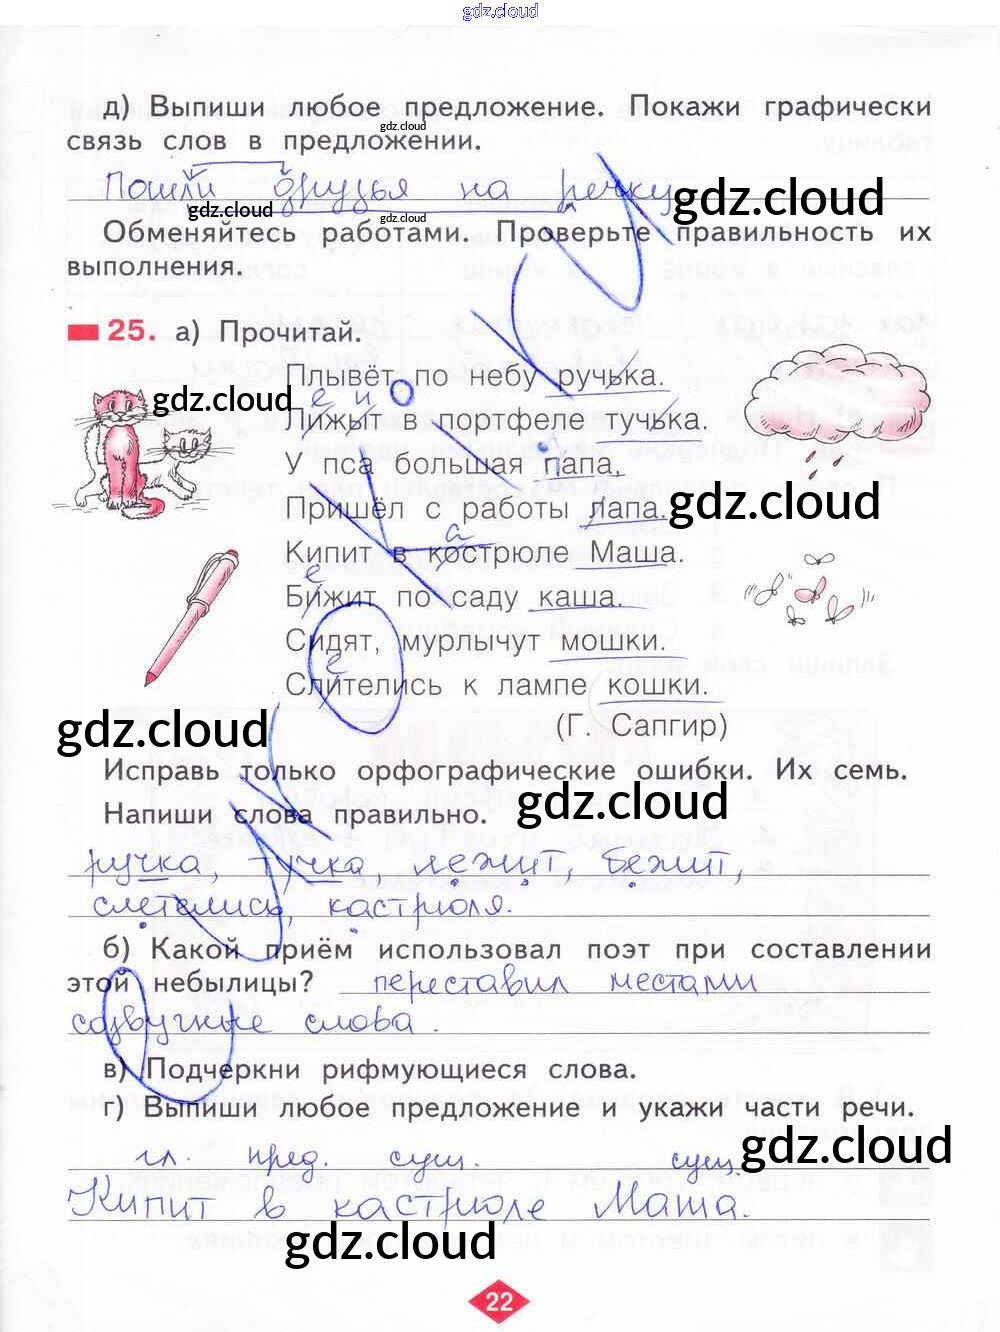 gdz.cloud
д) Выпиши любое предложение. Покажи графически
gdz.cloud
связь слов в предложении.
Пошли друзья на речку
gdz.cloud
gdz.cloud gdz.cloud
Обменяйтесь работами. Проверьте правильность их
выполнения.
25. а) Прочитай.
Плывёт по небу ручька.
gdz.cloud
е и
Лижыт в портфеле тучька.
У пса большая папа.
Пришёл с работы лапа.
gdz.cloud
а
Кипит в кострюле Маша.
е
Бижит по саду каша.
Сидят, мурлычут мошки.
е
Слителись к лампе кошки.
gdz.cloud
(Г. Сапгир)
Исправь только орфографические ошибки. Их семь.
gdz.cloud
Напиши слова правильно.
ручка, тучка, лежит, бежит,
слетелись, кастрюля.
б) Какой приём использовал поэт при составлении
этой небылицы? переставил местами
созвучные слова.
в) Подчеркни рифмующиеся слова.
г) Выпиши любое предложение и укажи части речи.
gdz.cloud
гл. пред. сущ. сущ.
Кипит в кастрюле Маша.
gdz.cloud
22